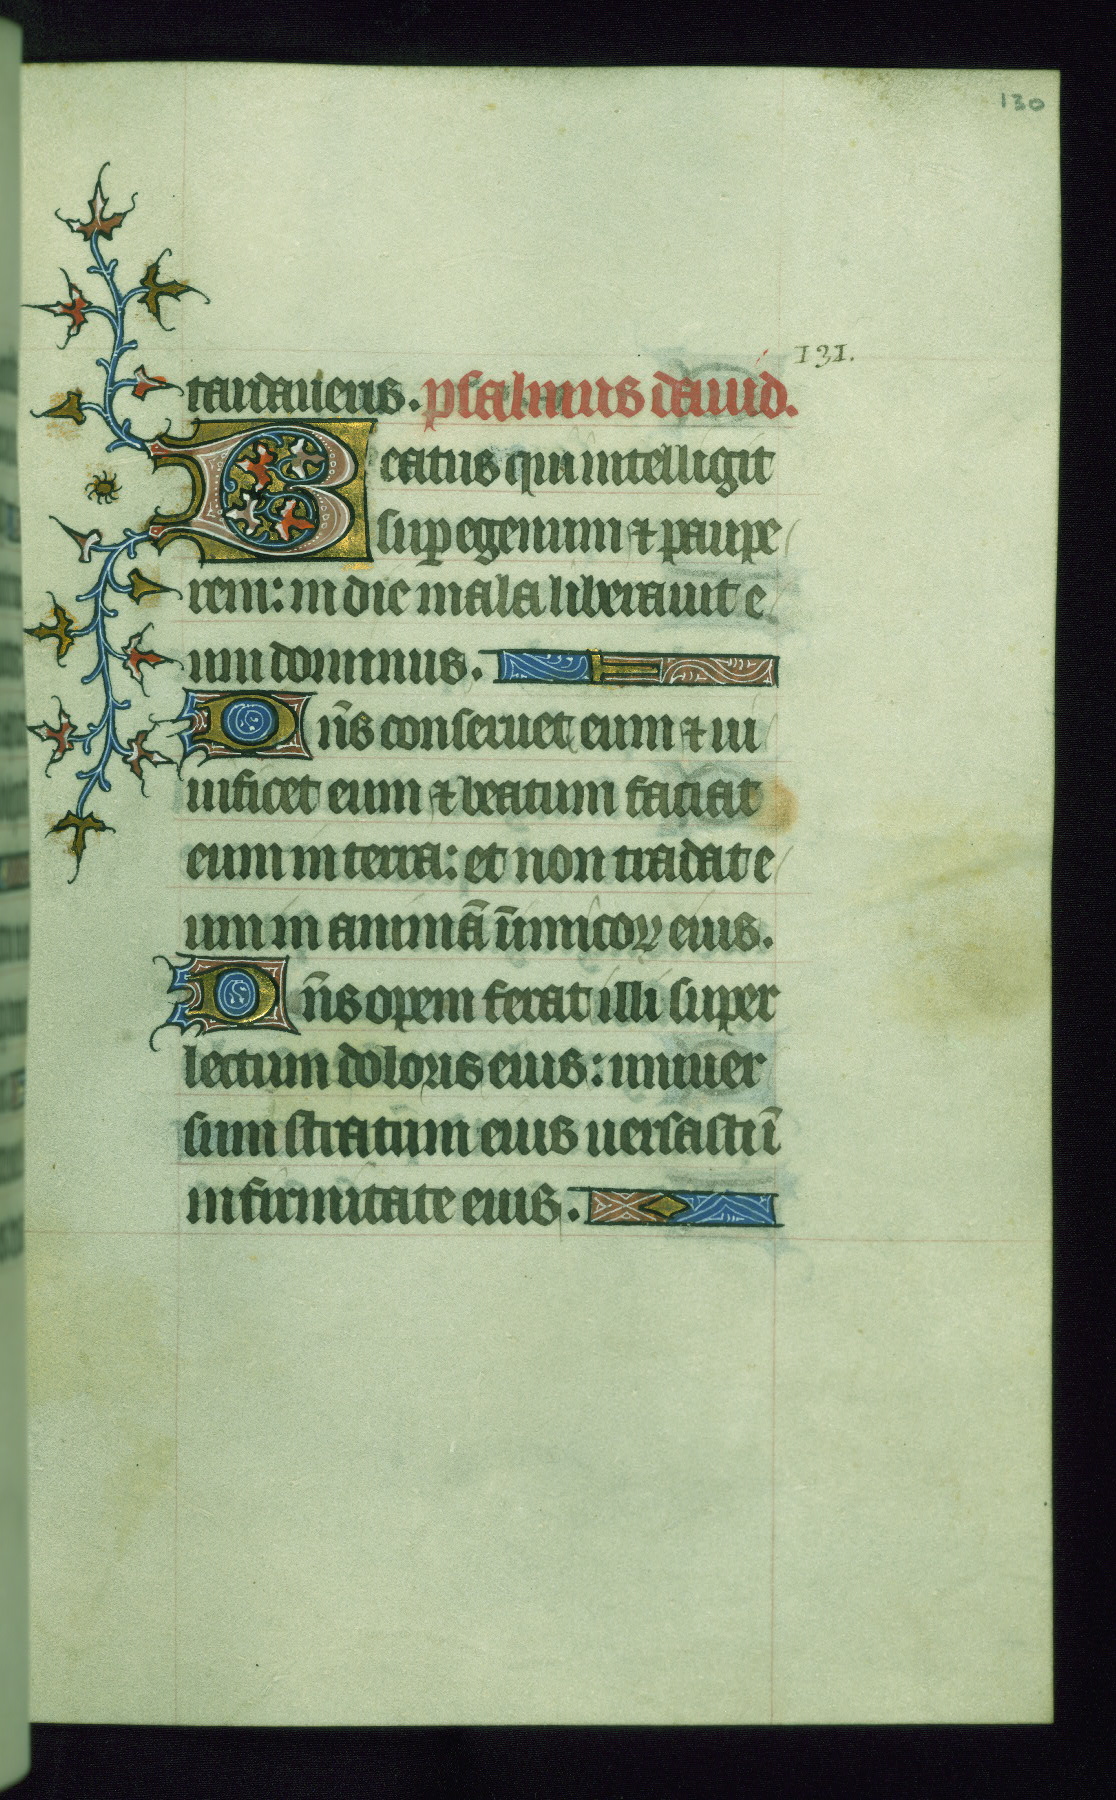 130
131.
tardaueris. psalmus dauid.
Beatus qui intelligit
sup egenum ⁊ paupe
rem: in die mala liberauit e
um dominus.
Dn̄s conseruet eum ⁊ ui
uificet eum ⁊ beatum faciat
eum in terra: et non tradat e
um in animā īimicoꝝ eius.
Dn̄s opem ferat illi super
lectum doloris eius: uniuer
sum stratum eius uersasti ī
infirmitate eius.